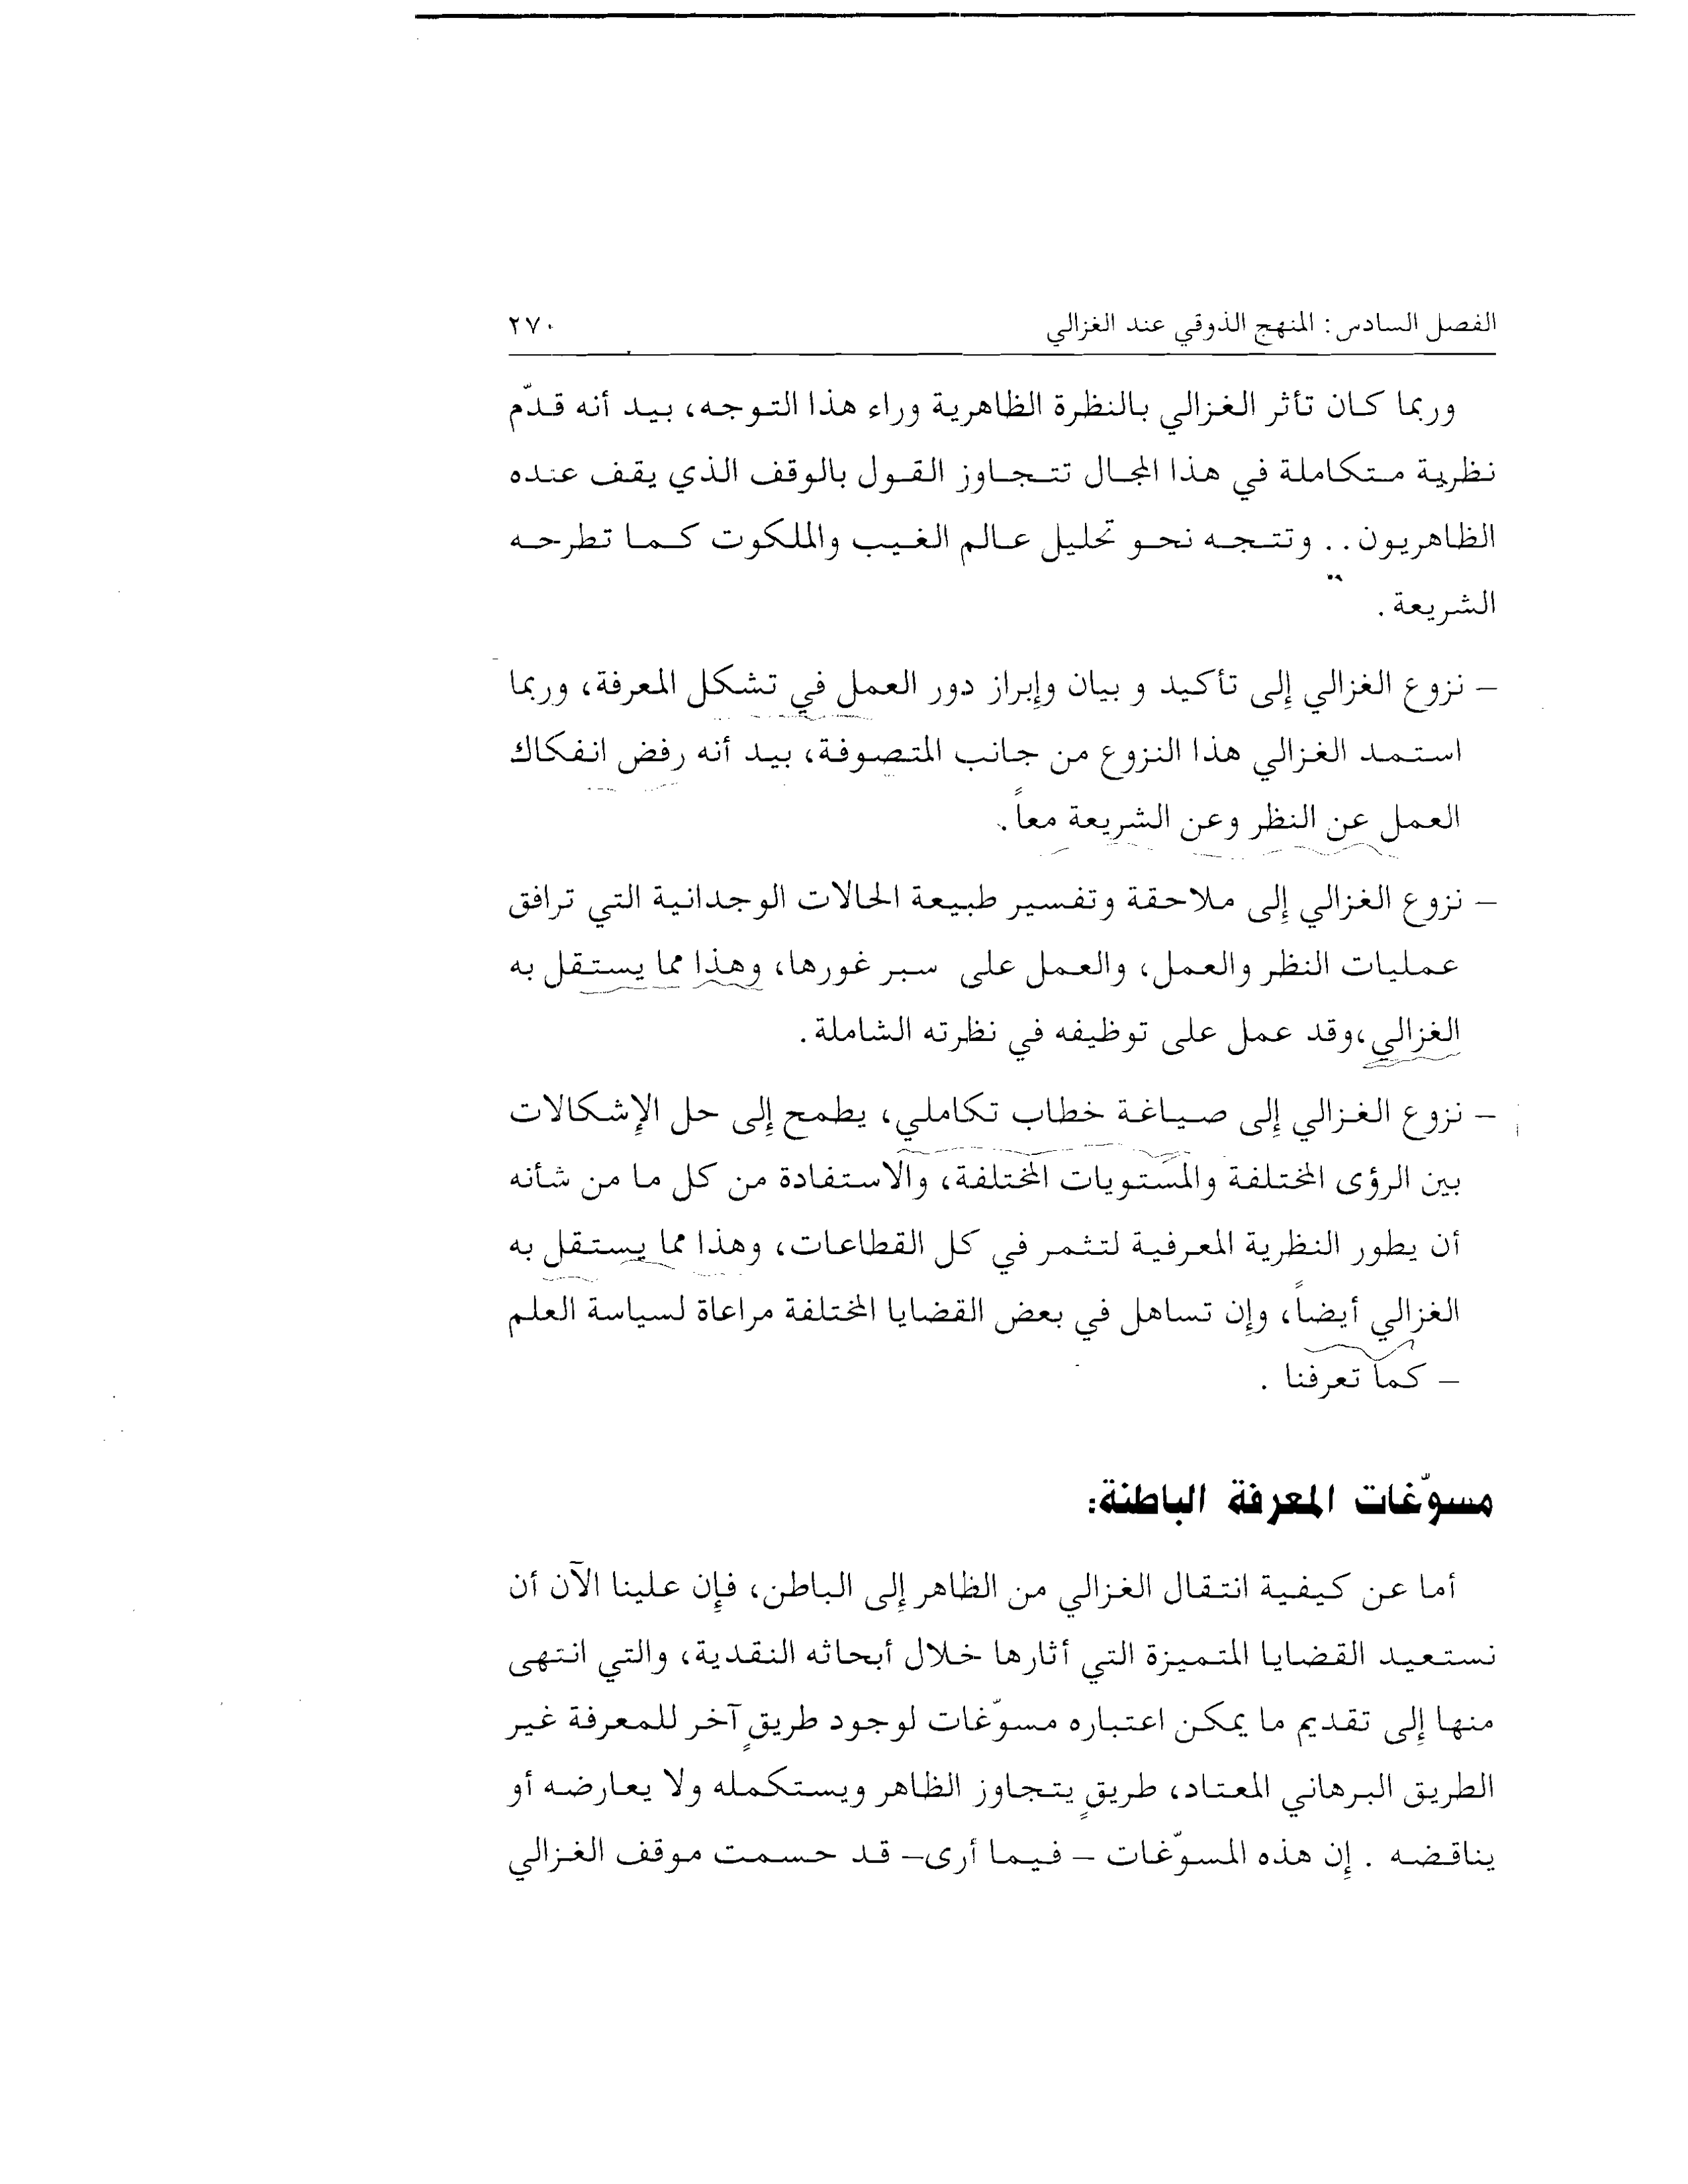 الفصل السادس: المنهج الذوقي عند الغزالي ٢٧٠
وربما كان تأثر الغزالي بالنظرة الظاهرية وراء هذا التوجه، بيد أنه قدّم
نظرية متكاملة في هذا المجال تتجاوز القول بالوقف الذي يقف عنده
الظاهريون.. وتتجه نحو تحليل عالم الغيب والملكوت كما تطرحه
الشريعة.
– نزوع الغزالي إلى تأكيد و بيان وإبراز دور العمل في تشكل المعرفة، وربما
استمد الغزالي هذا النزوع من جانب المتصوفة، بيد أنه رفض انفكاك
العمل عن النظر وعن الشريعة معاً.
– نزوع الغزالي إلى ملاحقة وتفسير طبيعة الحالات الوجدانية التي ترافق
عمليات النظر والعمل، والعمل على سبر غورها، وهذا مما يستقل به
الغزالي،وقد عمل على توظيفه في نظرته الشاملة.
– نزوع الغزالي إلى صياغة خطاب تكاملي، يطمح إلى حل الإشكالات
بين الرؤى المختلفة والمستويات المختلفة، والاستفادة من كل ما من شأنه
أن يطور النظرية المعرفية لتثمر في كل القطاعات، وهذا مما يستقل به
الغزالي أيضاً، وإن تساهل في بعض القضايا المختلفة مراعاة لسياسة العلم
– كما تعرفنا .
مسوّغات المعرفة الباطنة:
أما عن كيفية انتقال الغزالي من الظاهر إلى الباطن، فإن علينا الآن أن
نستعيد القضايا المتميزة التي أثارها خلال أبحاثه النقدية، والتي انتهى
منها إلى تقديم ما يمكن اعتباره مسوّغات لوجود طريقٍ آخر للمعرفة غير
الطريق البرهاني المعتاد، طريقٍ يتجاوز الظاهر ويستكمله ولا يعارضه أو
يناقضه . إن هذه المسوّغات – فيما أرى– قد حسمت موقف الغزالي